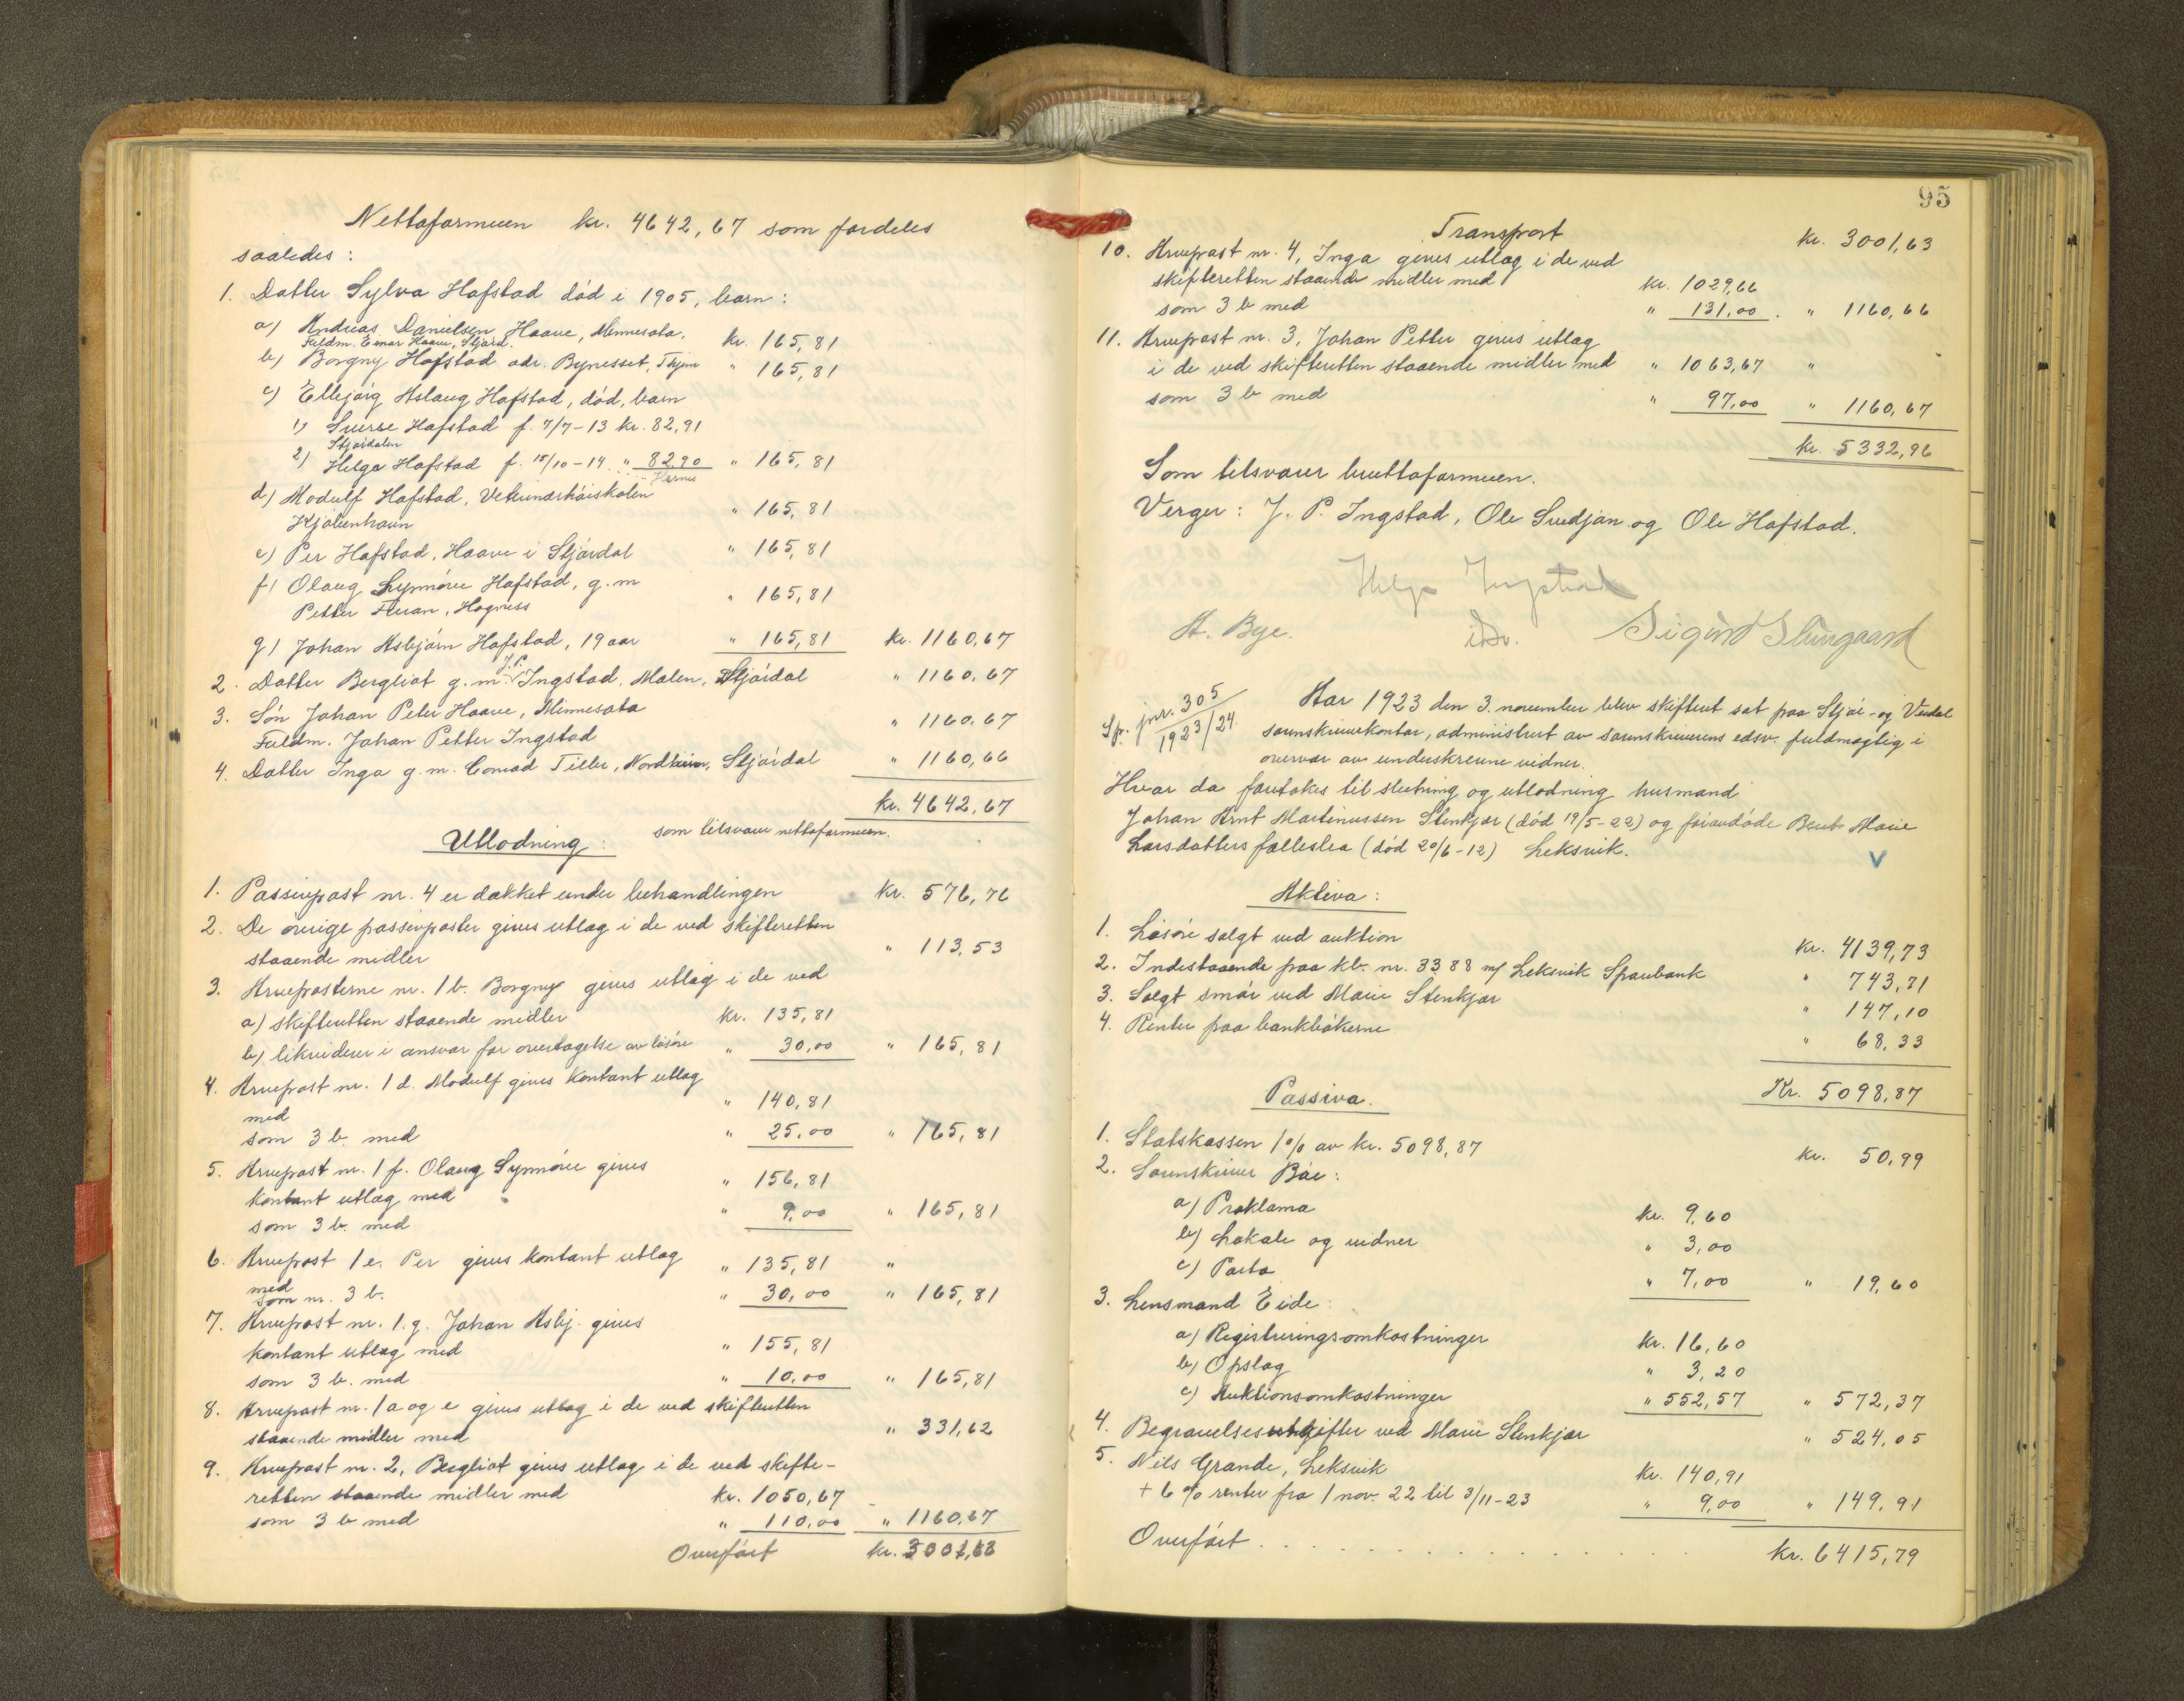 Nettoformuen kr. 4642,67 som fordeles
saaledes:
1. Datter Sylva Hafstad død i 1905, barn:
a) Andreas Danielsen Haave, Minnesota. kr. 165,81
Fuldm. Einar Haave, Stjørd.
b) Borgny Hafstad adr. Bynesset, Thjem " 165,81
c) Ellbjørg Aslaug Hafstad, død, barn
1) Sverre Hafstad f. 7/7-13 kr. 82,91
Stjørdalen
2) Helga Hafstad f. 15/10-14 " 82,90 " 165,81
d) Modulf Hafstad, Veterinærhøiskolen
Kjøbenhavn " 165,81
e) Per Hafstad, Haave i Stjørdal " 165,81
f) Olaug Synnøve Hafstad, g. m
Petter Fluan, Hogness " 165,81
g) Johan Asbjørn Hafstad, 19 aar " 165,81 kr. 1160,67
2. Datter Bergliot g. m. J.P. Ingstad, Malen, Stjørdal " 1160,67
3. Søn Johan Peter Haave, Minnesota " 1160,67
Fuldm. Johan Petter Ingstad
4. Datter Inga g. m. Conrad Tiller, Nordheim, Stjørdal " 1160,66
kr. 4642,67
som tilsvarer nettoformuen.
Utlodning:
1. Passivpost nr. 4 er dækket under behandlingen kr. 576,76
2. De øvrige passivposter gives utlæg i de ved skifteretten
staaende midler " 113,53
3. Arveposterne nr. 1 b. Borgny gives utlæg i de ved
a) skifteretten staaende midler kr. 135,81
b) likviderer i ansvar for overtagelse av løsøre " 30,00 " 165,81
4. Arvepost nr. 1 d. Modulf gives kontant utlæg
med " 140,81
som 3 b. med " 25,00 " 165,81
5. Arvepost nr. 1 f. Olaug Synnøve gives
kontant utlæg med " 156,81
som 3 b. med " 9,00 " 165,81
6. Arvepost 1 e. Per gives kontant utlæg
med " 135,81 "
som nr. 3 b. " 30,00 " 165,81
7. Arvepost nr. 1. g. Johan Asbj. gives
kontant utlæg med " 155,81
som 3 b. med " 10,00 " 165,81
8. Arvepost nr. 1 a og c gives utlæg i de ved skifteretten
staaende midler med " 331,62
9. Arvepost nr. 2, Bergliot gives utlæg i de ved skifte-
retten staaende midler med kr. 1050,67
som 3 b med " 110,00 " 1160,67
Overført kr. 3001,63
95
Transport kr. 3001,63
10. Arvepost nr. 4, Inga gives utlæg i de ved
skifteretten staaende midler med kr. 1029,66
som 3 b med " 131,00 . " 1160,66
11. Arvepost nr. 3, Johan Petter gives utlæg
i de ved skifteretten staaende midler med " 1063,67 "
som 3 b med " 97,00 " 1160,67
kr. 5332,96
Som tilsvarer bruttoformuen.
Verger: J. P. Ingstad, Ole Svedjan og Ole Hafstad.
Helge Ingstad
A. Bye. Sigurd
Sp. jnr. 305
1923/24
Aar 1923 den 3. november blev skifteret sat paa Stjør- og Verdal
sorenskriverkontor, administrert av sorenskriverens edsv. fuldmægtig i
overvær av underskrevne vidner.
Hvor da foretokes til slutning og utlodning husmand
Johan Arnt Martinussen Stenkjær (død 19/5-22) og foravdøde Beret Marie
Larsdatters fællesbo (død 20/6-12) Leksvik. V
Aktiva:
1. Løsøre solgt ved auktion kr. 4139,73
2. Indestaaende paa kb. nr. 3388 m/ Leksvik Sparebank " 743,71
3. Solgt smør ved Marie Stenkjær " 147,10
4. Renter paa bankbøkerne " 68,33
Kr. 5098,87
Passiva.
1. Statskassen 1% av kr. 5098,87 kr. 50,99
2. Sorenskriver Bøe:
a) Proklama kr. 9,60
b) Lokale og vidner " 3,00
c) Porto " 7,00 " 19,60
3. Lensmand Eide:
a) Registreringsomkostninger kr. 16,60
b) Opslag " 3,20
c) Auktionsomkostninger " 552,57 " 572,37
4. Begravelsesutgifter ved Marie Stenkjær " 524,05
5. Nils Grande, Leksvik kr. 140,91
+ 6% renter fra 1 nov. 22 til 3/11-23 " 9,00 " 149,91
Overført . . . . . . . . . . . . kr. 6415,79